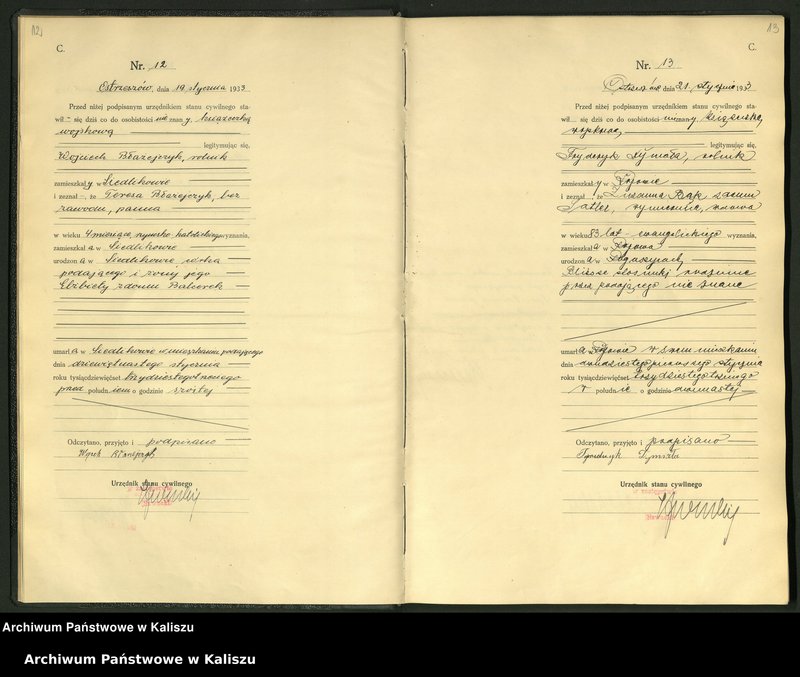 12
C.
Nr. 12
Ostrzeszów, dnia 19 stycznia 1933
Przed niżej podpisanym urzędnikiem stanu cywilnego sta-
wił - się dziś co do osobistości nieznany, książeczką
wojskową
legitymując się,
Wojciech Błażejczyk, rolnik
zamieszkały w Siedlikowie
i zeznał -, że Teresa Błażejczyk, bez
zawodu, panna
w wieku 4 miesiące, rzymsko-katolickiego wyznania,
zamieszkała w Siedlikowie
urodzona w Siedlikowie córka
podającego i żony jego
Elżbiety z domu Balcerek
umarła w Siedlikowie w mieszkaniu podającego
dnia dziewiętnastego stycznia
roku tysiącdziewięćset trzydziestegotrzeciego
przed południem o godzinie szóstej
Odczytano, przyjęto i podpisano
Błażejczyk
Urzędnik stanu cywilnego
13
C.
Nr. 13
Ostrzeszów dnia 21. stycznia 1933
Przed niżej podpisanym urzędnikiem stanu cywilnego sta-
wił się dziś co do osobistości nieznany, książeczką
wojskową,
legitymując się,
Fryderyk Dymała, rolnik
zamieszkały w Rojowie
i zeznał, że Zuzanna Bąk z domu
Sattler, rzymianka, wdowa
w wieku 83 lat - ewangelickiego wyznania,
zamieszkała w Rojowie
urodzona w
Bliższe stosunki rodzinne
przez podającego nie znane
umarła w Rojowie w swem mieszkaniu
dnia dwudziestegopierwszego stycznia
roku tysiącdziewięćset trzydziestegotrzeciego
w południe o godzinie dwunastej
Odczytano, przyjęto i podpisano
Fryderyk Dymała
Urzędnik stanu cywilnego
Archiwum Państwowe w Kaliszu
Archiwum Państwowe w Kaliszu